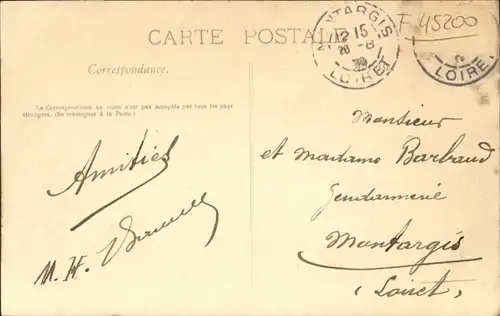 F 45200
CARTE POSTALE
MONTARGIS
12 15
28 -8
LOIRET
LOIRET
Correspondance.
La Correspondance au recto n'est pas acceptée par tous les pays
étrangers. (Se renseigner à la Poste.)
Amitiés
M. H.
Monsieur
et Madame Barbaud
Gendarmerie
Montargis
(Loiret)